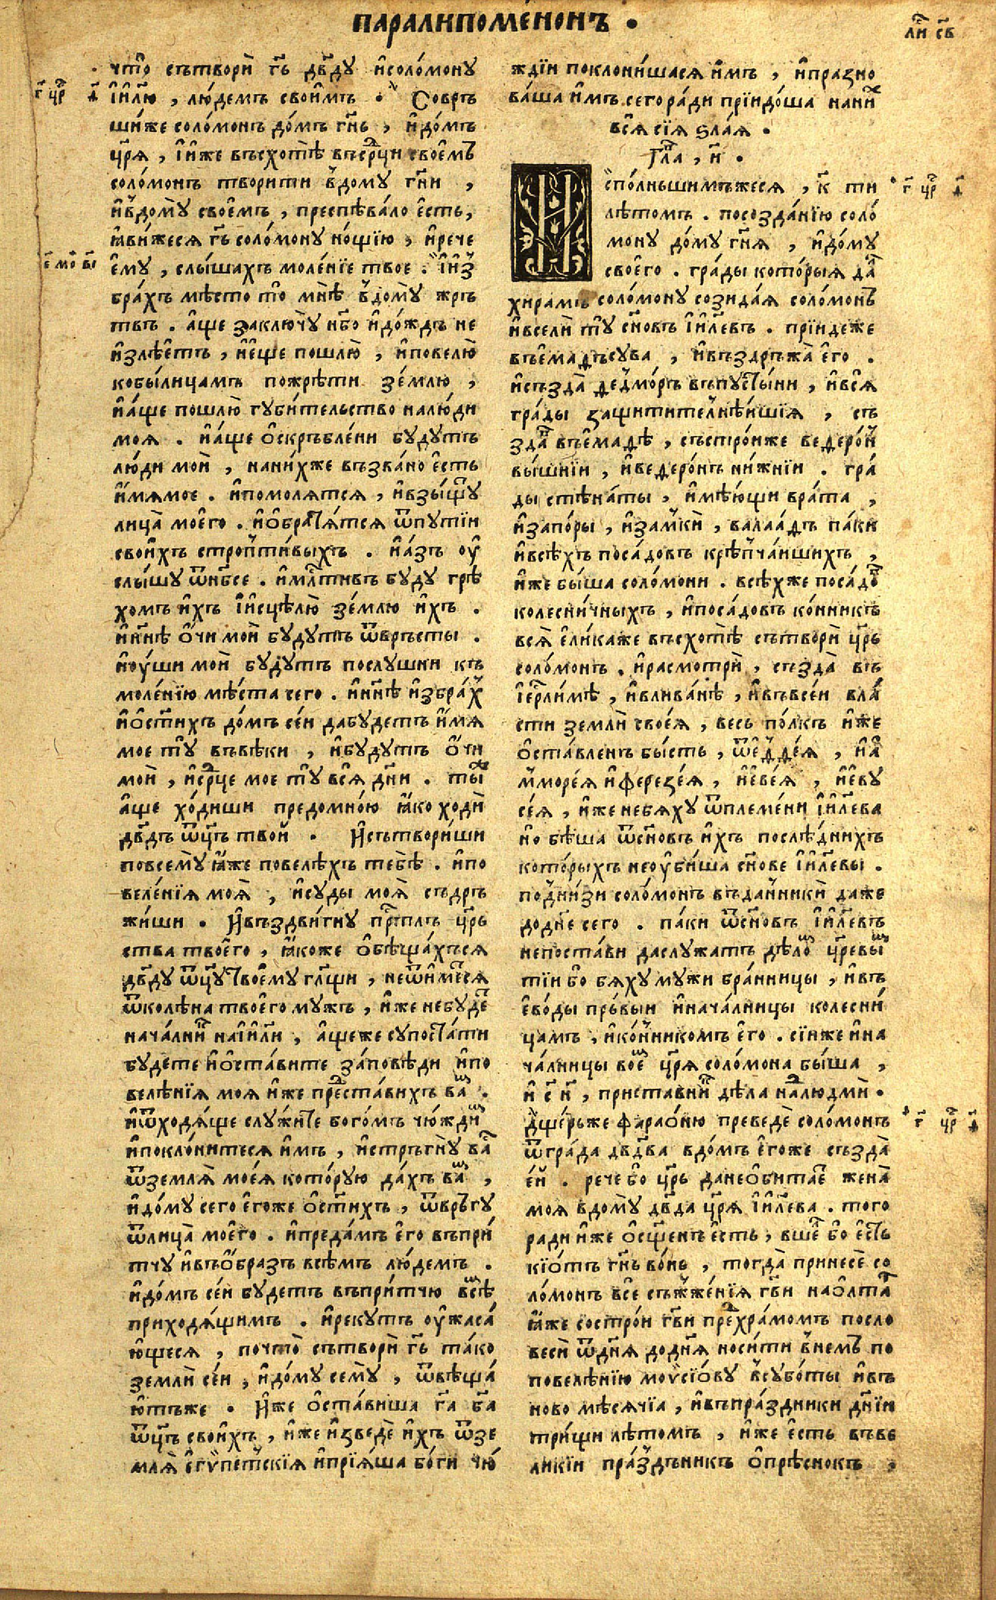 паралипоме́нонъ .
ли св
что̀ сътворѝ гь дв҃ду исоло́мону
і҆и҃лю , лю́демъ свои́мъ . Совръ
г҃ цр҃ д҃
ши́же соло́монъ до́мъ гн҃ь , идо́мъ
цр҃я , и҆же въсхотѣ̀ вср҃цы свое́мъ
соло́монъ твори́ти вдо́му гн҃и ,
ивдо́му свое́мъ , преспѣва́ло е҆сть ,
я҆ви́жеся гь соло́мону но́щїю , ирече
є҆му , слы́шахъ моле́нїе твое . и҆из
брахъ мѣ́сто то̀ мнѣ̀ вдо́му жръ
твъ . а҆ще заключу нб҃о идо́ждь не
излѣетъ , иа҆ще пошлю̀ , иповелю̀
кобы́лицамъ пожрѣ́ти зе́млю ,
иа҆ще пошлю̀ губи́тельство налю́ди
моя . иа҆ще о҆скръбле́ни будутъ
лю́ди мои̑ , нани́хже възва́но е҆сть
и҆мямое . ипомо́лятся , ивзы́щу
лица̀ моего̀ . иѡ҆братя́тся ѿпутїи
свои́хъ стропти́выхъ . иа҆зъ оу
слы́шу ѿнб҃се . имл҃тивъ буду грѣ
хомъ и҆хъ іи҆сцѣлю̀ зе́млю и҆хъ .
инн҃ѣ о҆чи мои̑ будутъ ѿвръсты .
иоу́ши мои̑ будутъ послушни къ
моле́нїю мѣ́ста сего . инн҃ѣ избра́х
иѡ҆ст҃ихъ до́мъ се́и дабудетъ и҆мя
мое ту̀ въвѣки , ибудутъ о҆чи
мои̑ , иср҃це мое ту̀ вся̀ дн҃и . ты̀
а҆ще хо́диши предомно́ю я҆ко ходѝ
дв҃дъ ѿц҃ъ твои̑ . Исътвори́ши
повсему я҆же повелѣхъ тебѣ . ипо
веле́нїя моя̀ , исуды моя̀ съдръ
жи́ши . Ивъздви́гну пр҃тлъ цр҃ь
ства твоего , я҆коже о҆бѣща́хъся
дв҃ду ѿц҃у твоему гл҃щи , неѿиме́ся
ѿколѣ́на твоего мужъ , и҆же небуде
нача́лникъ наі҆и҃ли , а҆щеже супоста́ти
будете иѡ҆ста́вите за́повѣди ипо
веле́нїя моя и҆же преста́вихъ ва .
иѿходя́ще служи́те бого́мъ чюжди
ипоклони́теся и҆мъ , истръ́гну ва
ѿземля̀ моея̀ кото́рую да́хъ ва ,
идо́му сего є҆гоже о҆ст҃ихъ , ѿвръгу
ѿлица̀ моего . ипреда́мъ є҆го въпри́
тчу ивъѡ́бразъ всѣ́мъ лю́демъ .
идо́мъ се́и будетъ въпри́тчю всѣ
приходя́щимъ . ирекутъ оу҆жаса́
ющеся , почто̀ сътворѝ гь та́ко
землѝ се́и , идо́му сему , ѿвѣща́
ютьже . И҆же о҆ста́виша га ба
ѿц҃ъ свои́хъ , и҆же изведѐ и҆хъ ѿзе
мля̀ є҆гѵпетскїя ипрїя́ша бо́ги чю́
ждїи поклони́шася и҆мъ , ипразно
ваша и҆мъ . сегора́ди прїидо́ша нани
вся̀ сїя̀ ѕла́я .
Гла , и҃ .
Исполньшимъжеся , к҃ ти
г҃ цр҃ д҃
лѣ́томъ . посозда́нїю соло́
мону до́му гн҃я , идо́му
своего . гра́ды кото́рыя да
хирамъ соло́мону созида́я соло́монъ
ивселѝ ту сн҃овъ і҆и҃левъ . прїидеже
въема́дъсува , ивъздръжа̀ є҆го .
исъзда̀ дедмо́ръ въпусты́ни , ився
гра́ды защити́телнѣишїя , съ
зда въема́дѣ , състро́иже ведеро́н
вы́шнїи , иведеро́нъ ни́жнїи . гра́
ды стѣна́ты , имѣ́ющи врата ,
изапо́ры , иза́мки , валаа́дъ па́ки
ивсѣ́хъ поса́довъ крѣпча́ишихъ ,
и҆же бы́ша соло́мони . всѣ́хже поса́до
колесни́чныхъ , ипоса́довъ ко́нникъ
вся̀ є҆ли́каже въсхотѣ̀ сътворѝ цр҃ь
соло́монъ . ирасмотрѝ , създа̀ въ
і҆ер҃лимѣ , ивлива́нѣ , ивъвсе́и вла́
сти землѝ своея̀ , весь по́лкъ и҆же
о҆ста́вленъ бы́сть , ѿедде́я , иа
мморе́я иферезе́я , иеве́я , иеву
се́я , и҆же небяху ѿпле́мени і҆и҃лева
но бѣ́ша ѿсн҃овъ и҆хъ послѣ́днихъ
кото́рыхъ неоуби́ша сн҃ове і҆и҃левы .
подни́зи соло́монъ въда́нники даже
додне сего . па́ки ѿсн҃овъ і҆и҃левъ
непоста́ви даслужатъ дѣ́ло цр҃евы
тїи бо бяху мужи бра́нницы , ивъ
є҆во́ды пръ́выи инача́лницы колесни́
цамъ , ико́нникомъ є҆го . сїиже ина
ча́лницы вое цр҃я соло́мона бы́ша ,
и҆ с҃ н҃ , приста́вни дѣ́ла налюдмѝ .
Дще́рьже фарао́ню преведѐ соло́монъ
г҃ цр҃ д҃
ѿгра́да дв҃два вдо́мъ є҆гоже създа̀
є҆и . рече бо цр҃ь данеѡбита́е жена̀
моя вдо́му дв҃да цр҃я і҆и҃лева . того
ради и҆же о҆сще́нъ є҆сть , вше бо е҆сть
кїо́тъ гн҃ь во́нь , тогда̀ принесѐ со
ло́монъ все съжже́нїя гв҃и наолта
я҆же состро́и гв҃и пре́дхра́момъ посло
весѝ ѿдня̀ до дня̀ носи́ти вне́мъ по
повелѣ́нїю моѵсїо́ву всубо́ты ивъ
ново мѣ́сячїа , ивъпра́здники дн҃їи
три́щи лѣ́томъ , и҆же е҆сть въве
ли́кїи пра́здьникъ о҆прѣ́снокъ ,